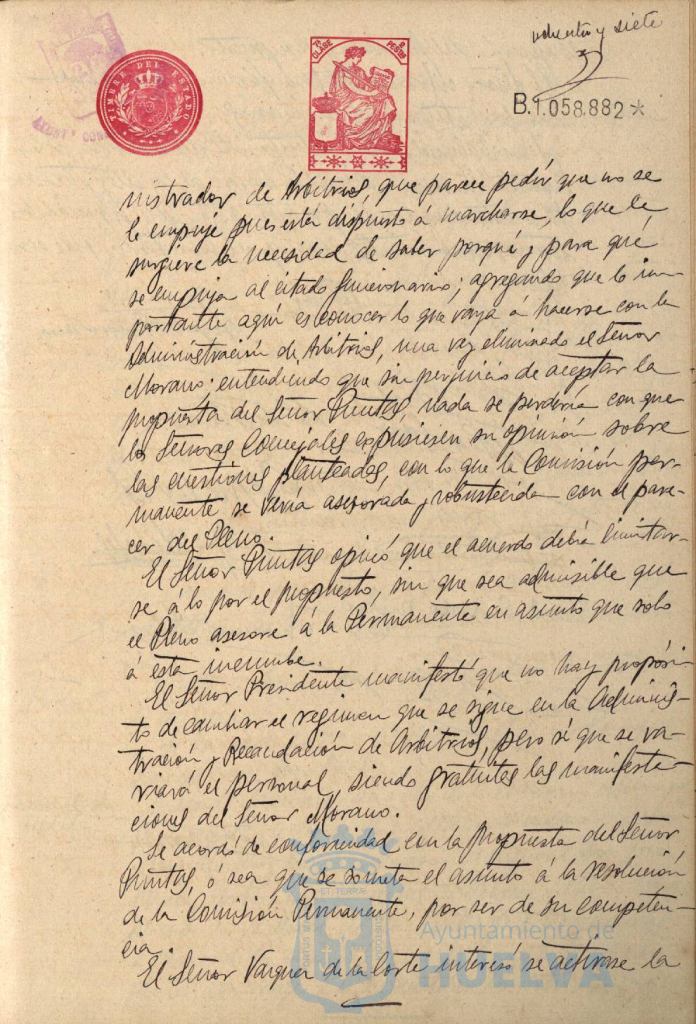 y siete
TIMBRE DEL ESTADO
7ª CLASE 8 PESTAS
B.1.058.882*
nistrador de Arbitrios, que parece pedir que no se
le empuje pues está dispuesto á marcharse, lo que le
sugiere la necesidad de saber porqué y para qué
se empuja al citado funcionario; agregando que lo im-
portante aquí es conocer lo que vaya á hacerse con la
Administración de Arbitrios, una vez eliminado el Señor
Morano; entendiendo que sin perjuicio de aceptar la
propuesta del Señor Puntas, nada se perdería con que
los Señores Concejales expusiesen su opinión sobre
las cuestiones planteadas, con lo que la Comisión per-
manente se vería asesorada y robustecida con el pare-
cer del Pleno.
El Señor Puntas opinó que el acuerdo debía limitar-
se á lo por el propuesto, sin que sea admisible que
el Pleno asesore á la Permanente en asunto que solo
á esta incumbe.
El Señor Presidente manifestó que no hay propósi-
to de cambiar el regimen que se sigue en la Adminis-
tración y Recaudación de Arbitrios, pero sí que se va-
riará el personal, siendo gratuitas las manifesta-
ciones del Señor Morano.
Se acordó de conformidad con la propuesta del Señor
Puntas, ó sea que se someta el asunto á la resolución
de la Comisión Permanente, por ser de su competen-
cia.
El Señor Vazquez de la Corte interesó se activase la
Ayuntamiento de
HUELVA